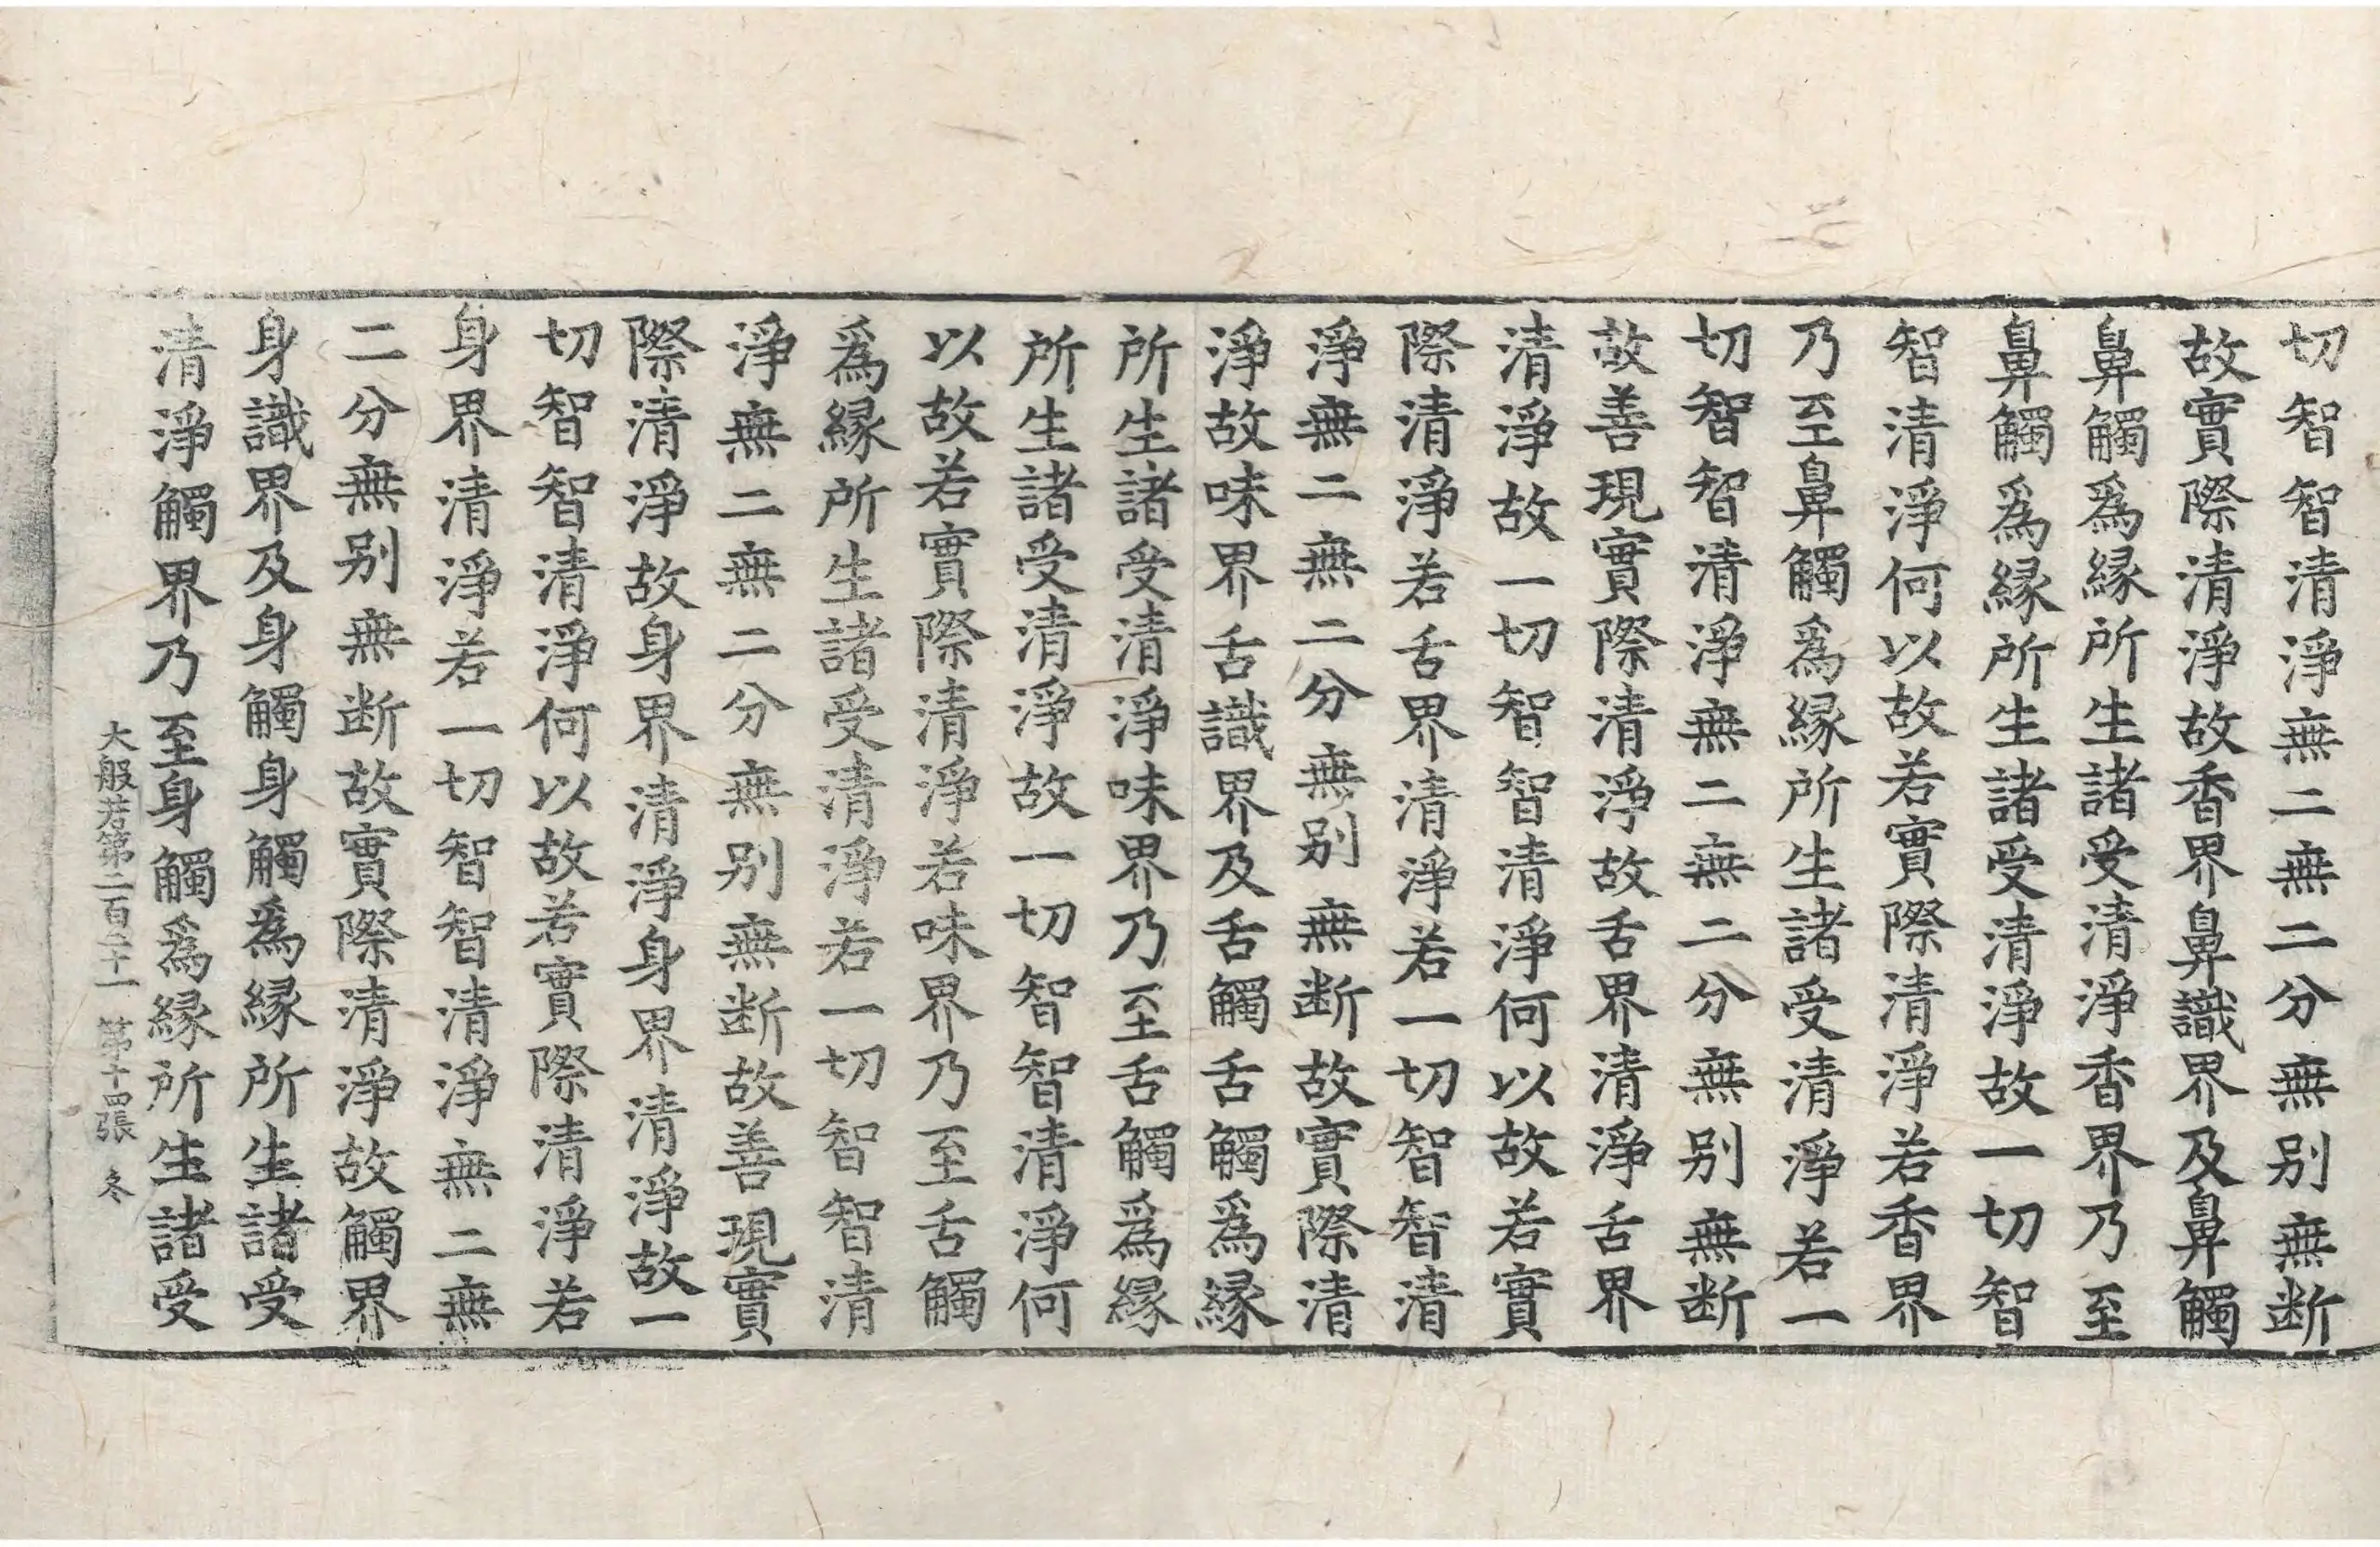 切智智清淨無二無二分無别無断
故實際清淨故香界鼻識界及鼻觸
鼻觸爲縁所生諸受清淨香界乃至
鼻觸爲縁所生諸受清淨故一切智
智清淨何以故若實際清淨若香界
乃至鼻觸爲縁所生諸受清淨若一
切智智清淨無二無二分無别無断
故善現實際清淨故舌界清淨舌界
清淨故一切智智清淨何以故若實
際清淨若舌界清淨若一切智智清
淨無二無二分無别無断故實際清
淨故味界舌識界及舌觸舌觸爲縁
所生諸受清淨味界乃至舌觸爲縁
所生諸受清淨故一切智智清淨何
以故若實際清淨若味界乃至舌觸
爲縁所生諸受清淨若一切智智清
淨無二無二分無别無断故善現實
際清淨故身界清淨身界清淨故一
切智智清淨何以故若實際清淨若
身界清淨若一切智智清淨無二無
二分無别無断故實際清淨故觸界
身識界及身觸身觸爲縁所生諸受
清淨觸界乃至身觸爲縁所生諸受
大般若第二百二十一 第十四張 冬